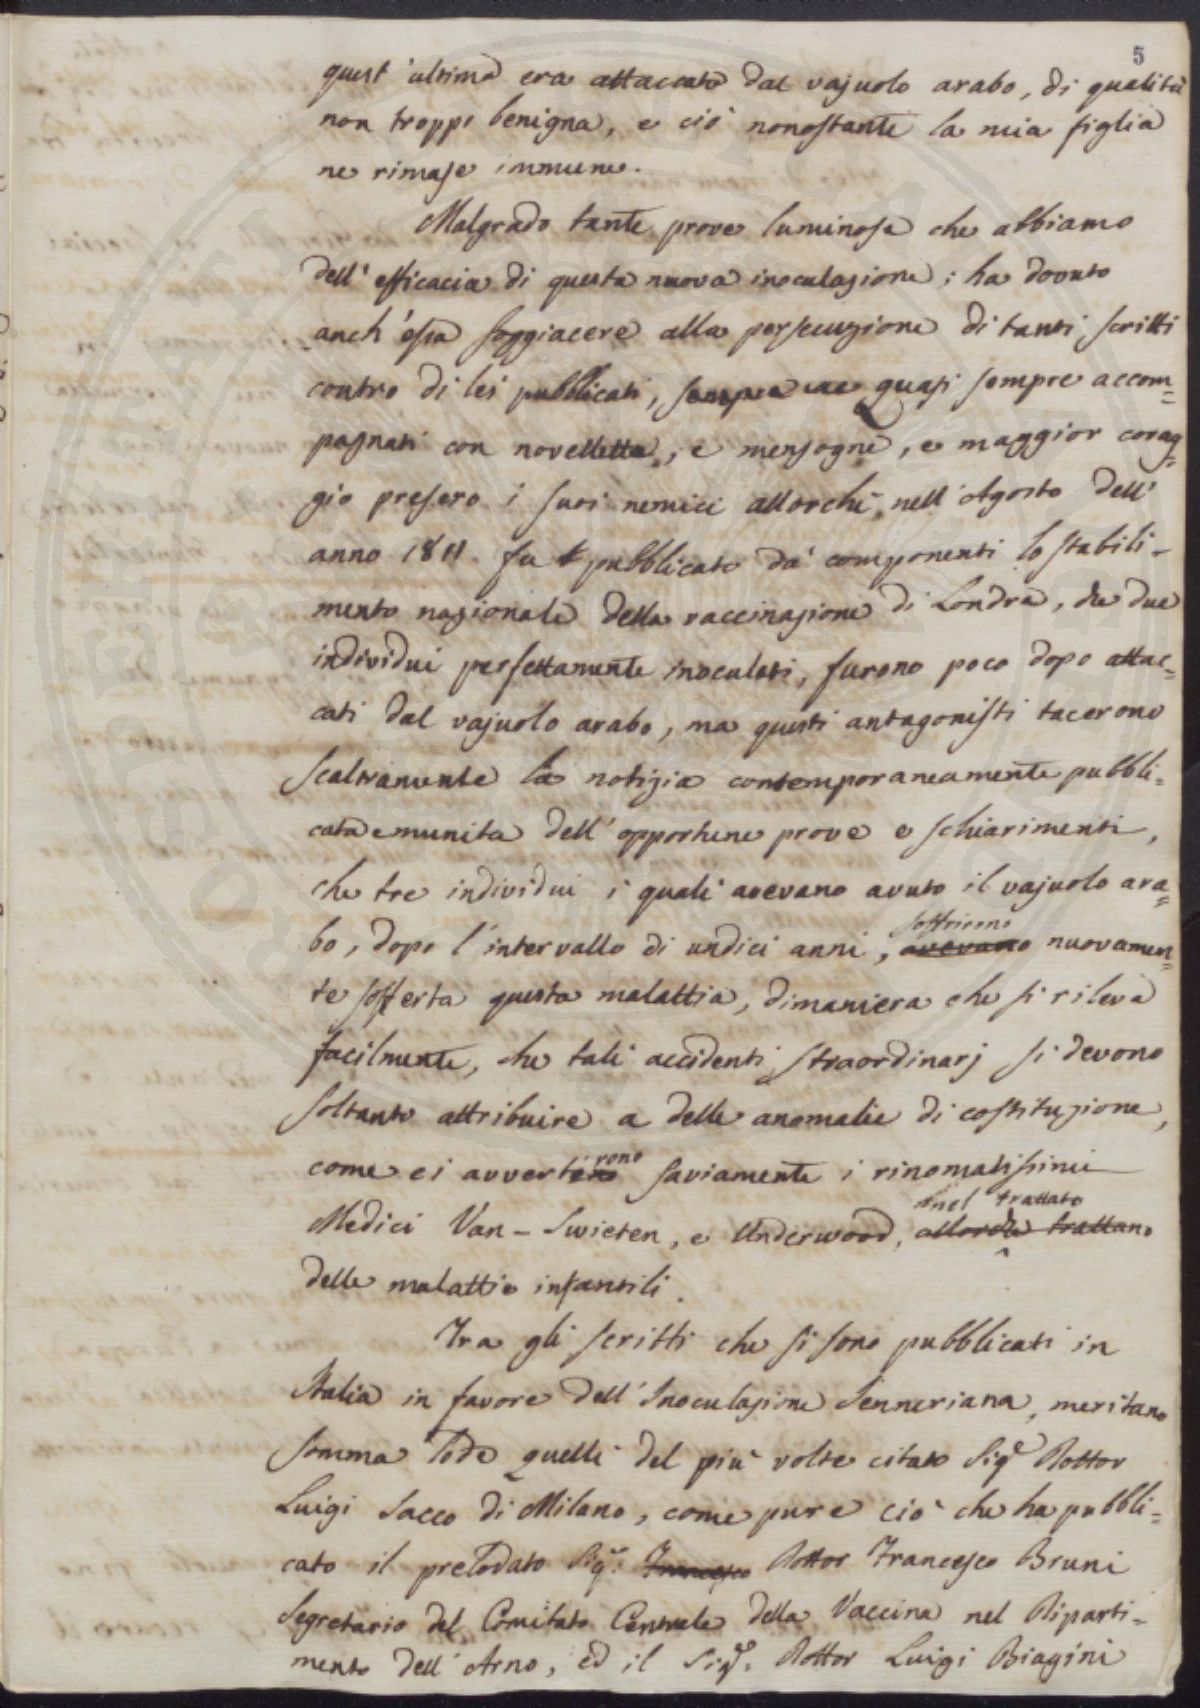 5
quest'ultima era attaccata dal vajuolo arabo, di qualità
non troppo benigna, e ciò nonostante la mia figlia
ne rimase immune.
Malgrado tante prove luminose che abbiamo
dell'efficacia di questa nuova inoculazione; ha dovuto
anch'essa soggiacere alla persecuzione di tanti scritti
contro di lei pubblicati, quasi sempre accom=
pagnati con novellette, e menzogne, e maggior corag=
gio presero i suoi nemici allorchè nell'Agosto dell'
anno 1811. fu pubblicato da' componenti lo stabili-
mento nazionale della vaccinazione di Londra, che due
individui perfettamente inoculati, furono poco dopo attac=
cati dal vajuolo arabo, ma questi antagonisti tacerono
scaltramente la notizia contemporaneamente pubbli=
cata e munita dell'opportune prove e schiarimenti,
che tre individui i quali avevano avuto il vajuolo ara=
bo, dopo l'intervallo di undici anni, avevano soffrirono nuovamen=
te sofferta questa malattia, dimaniera che si rileva
facilmente, che tali accidenti straordinarj si devono
soltanto attribuire a delle anomalie di costituzione,
come ci avvertirono saviamente i rinomatissimi
Medici Van-Swieten, e Underwood, allorchè trattano nel trattato
delle malattie infantili.
Tra gli scritti che si sono pubblicati in
Italia in favore dell'Inoculazione Jenneriana, meritano
somma lode quelli del più volte citato Sigr Dottor
Luigi Sacco di Milano, come pure ciò che ha pubbli=
cato il prelodato Sigr. Francesco Dottor Francesco Bruni
Segretario del Comitato Centrale della Vaccina nel Diparti-
mento dell'Arno, ed il Sigr. Dottor Luigi Biagini